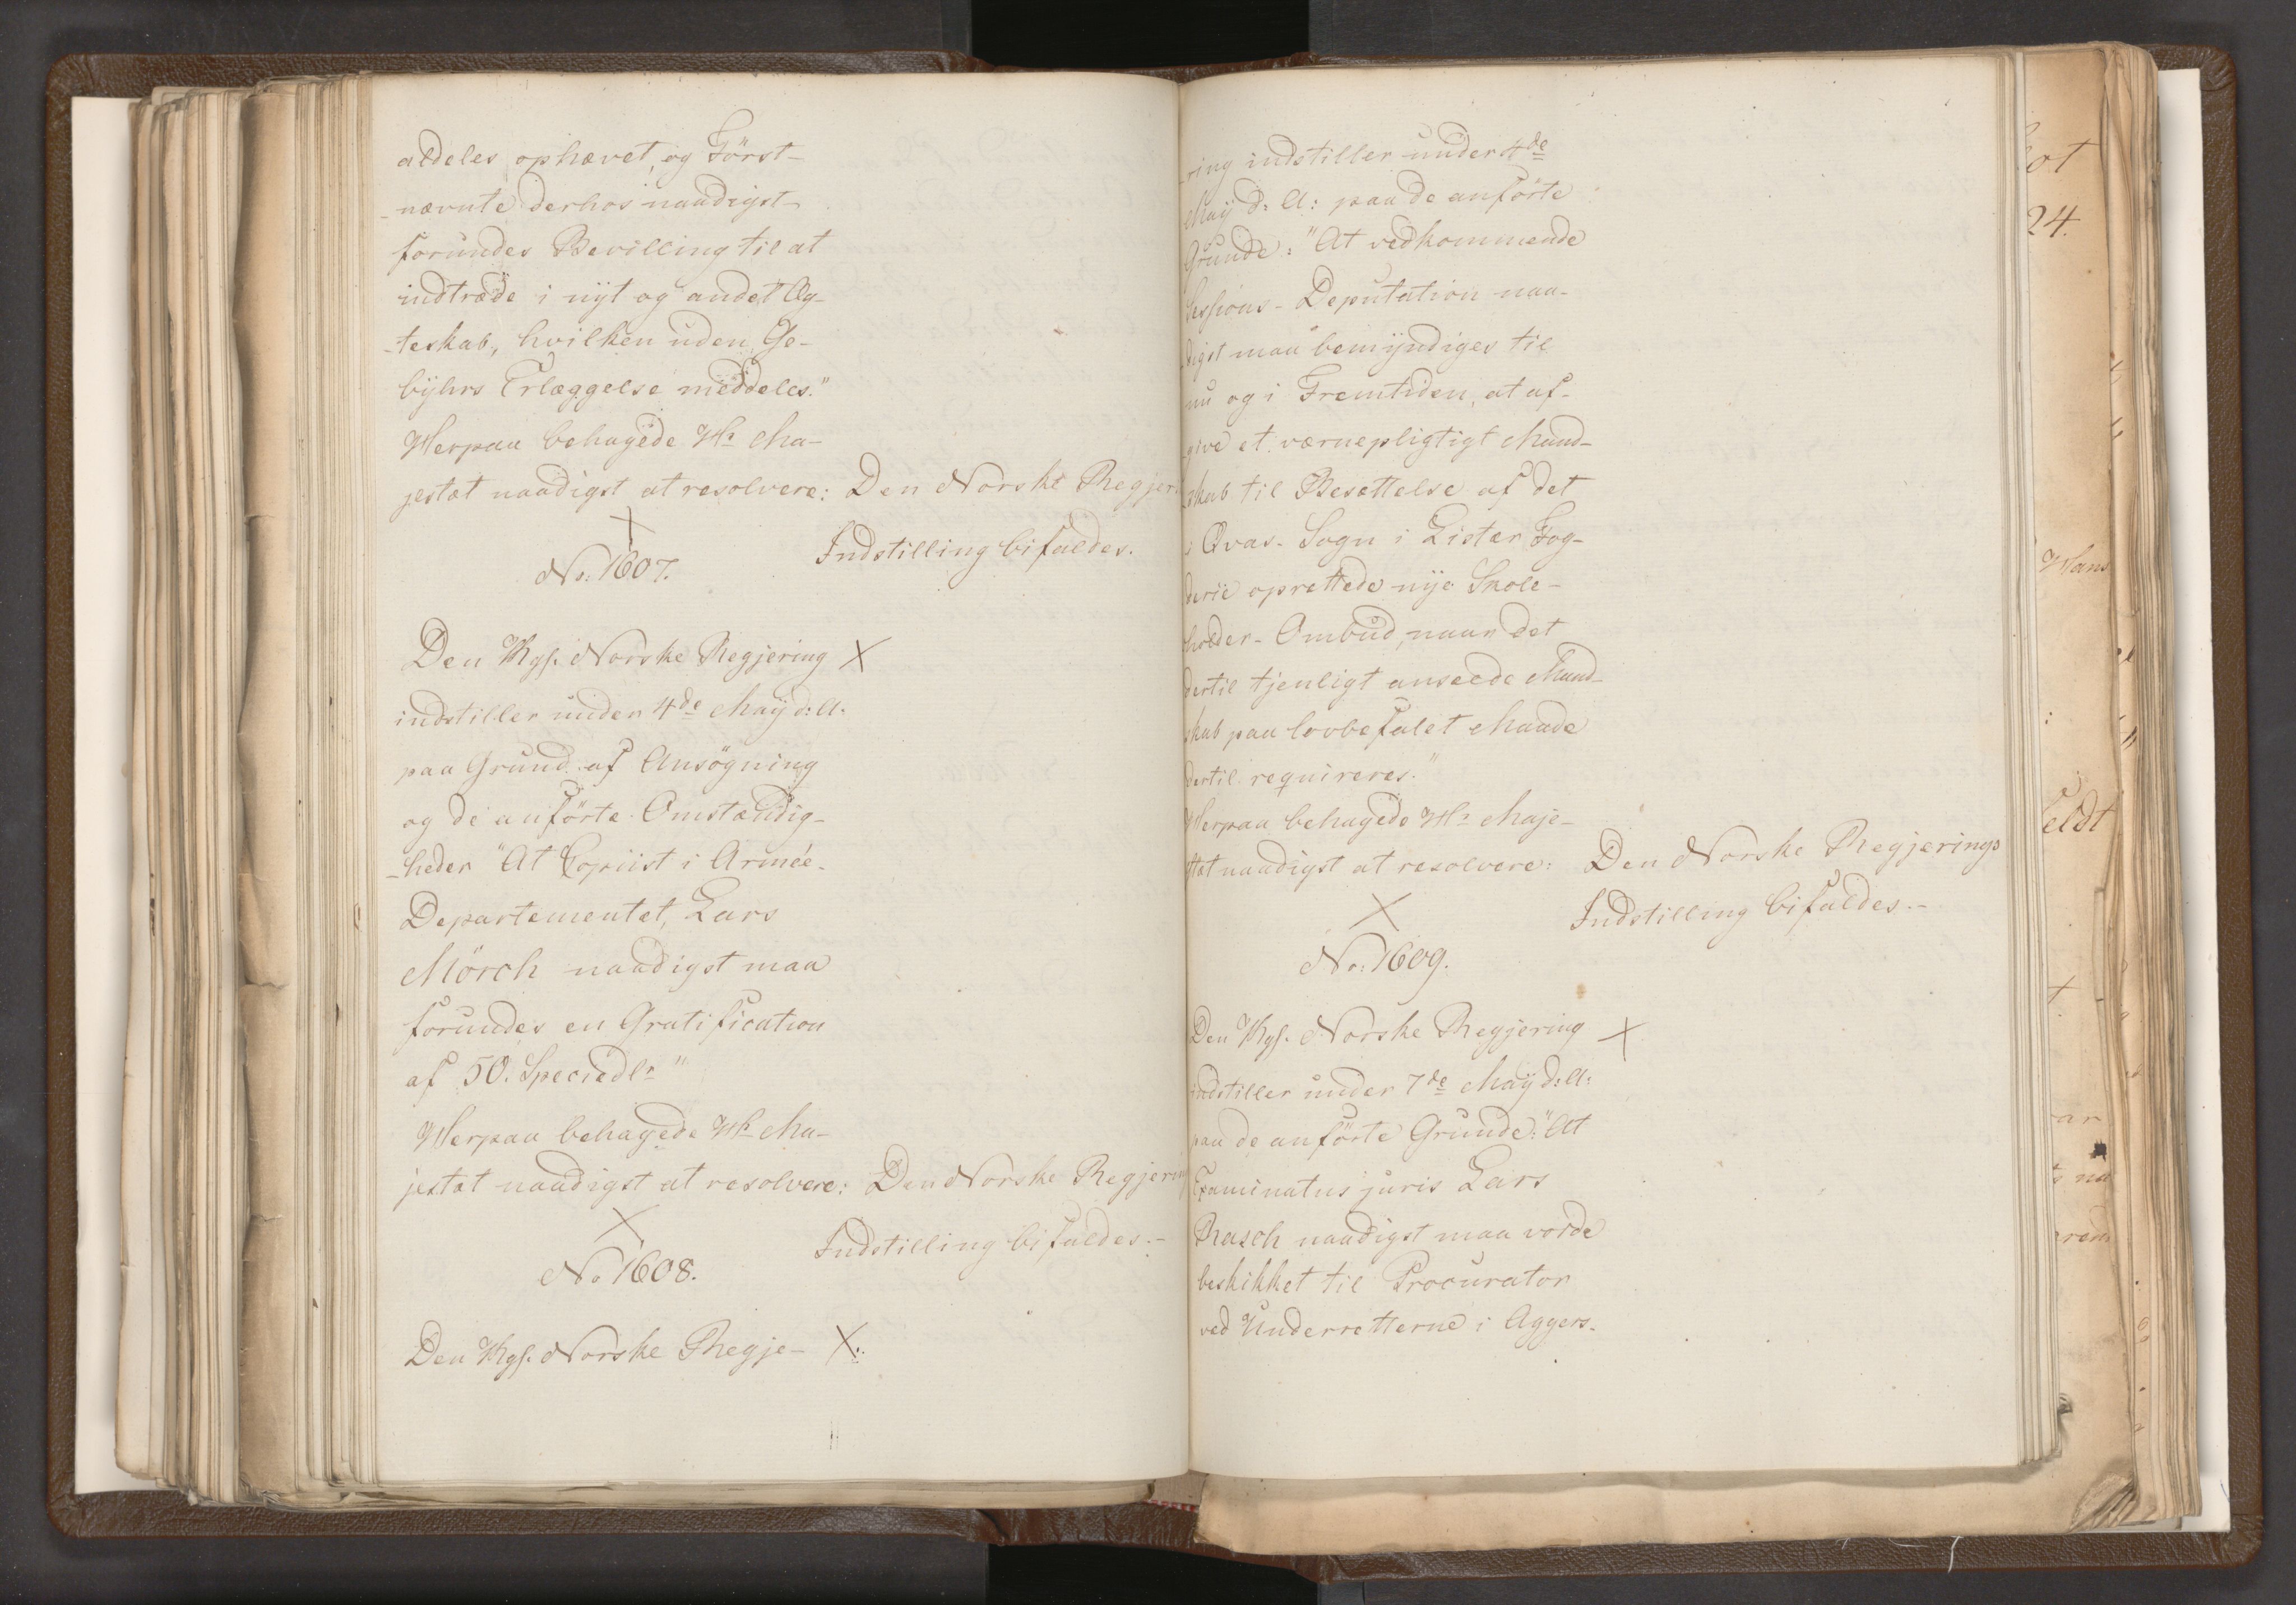 aldeles ophævet, og Först-
-nævnte derhos naadigst
forundes Bevilling til at
indtræde i nÿt og andet Æg-
-teskab, hvilken uden Ge-
bÿhrs Erlæggelse meddeles."
Herpaa behagede Hs Ma-
jestæt naadigst at resolvere: Den Norske Regjer.
Indstilling bifaldes.
No: 1607.
Den Kgl. Norske Regjering X
indstiller under 4de Maÿ d: A:
paa Grund af Ansögning
og de anförte Omstændig-
-heder "At Copiist i Armée-
Departementet, Lars
Mörch naadigst maa
forundes en Gratification
af 50. Speciedlr"
Herpaa behagede Hs Ma-
jestæt naadigst at resolvere: Den Norske Regjering
Indstilling bifaldes.-
No 1608.
Den Kgl. Norske Regje- X
-ring indstiller under 4de
Maÿ d: A: paa de anförte
Grunde: "At vedkommende
Sessions-Deputation naa-
digst maa bemÿndiges til
nu og i Fremtiden, at af-
-give et værnepligtigt Mand-
skab til Besættelse af det
i Qvas-Sogn i Lister Fog-
derie oprettede nÿe Skole-
holder-Ombud, naar det
dertil tjenligt anseede Mand-
skab paa lovbefalet Maade
dertil requireres."
Herpaa behagede Hs Maje-
stæt naadigst at resolvere: Den Norske Regjerings
Indstilling bifaldes.-
No: 1609.
Den Kgl. Norske Regjering X
indstiller under 7de Maÿ d: A:
paa de anförte Grunde: "At
Examinatus juris Lars
Rasch naadigst maa vorde
beskikket til Procurator
ved Underretterne i Aggers-
24.
Hans